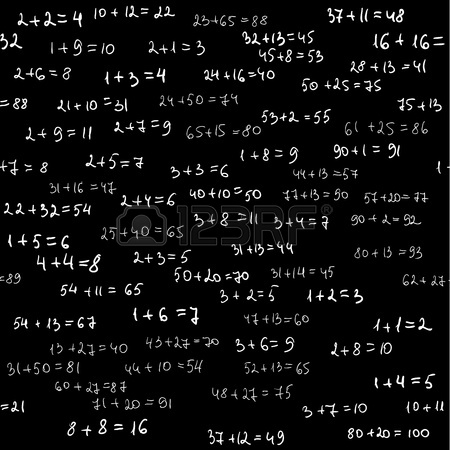 2+2=4 10+12=22 23+65=88 37+11=48
32 1+9=10 2+1=3 32+13=45 16+16=
2+6=8 1+3=4 24+16=40 45+8=53 28+13=41
50+25=75
=88 21+10=31 24+50=74 75+13
2+9=11 2+7=9 65+15=80 53+2=55 61+25=86
+7=8 2+5=7 3+3=6 1+8=9 90+1=91
31+16=47 44+13=57
22+32=54 2+4=6 40+10=50 77+13=90 57+20=77
123RF
1+5=6 25+40=65 3+8=11 3+4=7 90+2=92
4+4=8 2+3=5 31+13=44 80+13=93
=89 50+20=70 31+14=45 62+27
54+11=65 3+2=5 1+2=3
54+13=67 1+6=7 47+13=60 1+1=2
13+27=40 43+27=70 3+6=9 2+8=10
31+50=81 44+10=54 52+13=65
60+27=87 48+27=75 1+4=5
=21 71+20=91 3+7=10 10+11
8+8=16 37+12=49 80+20=100